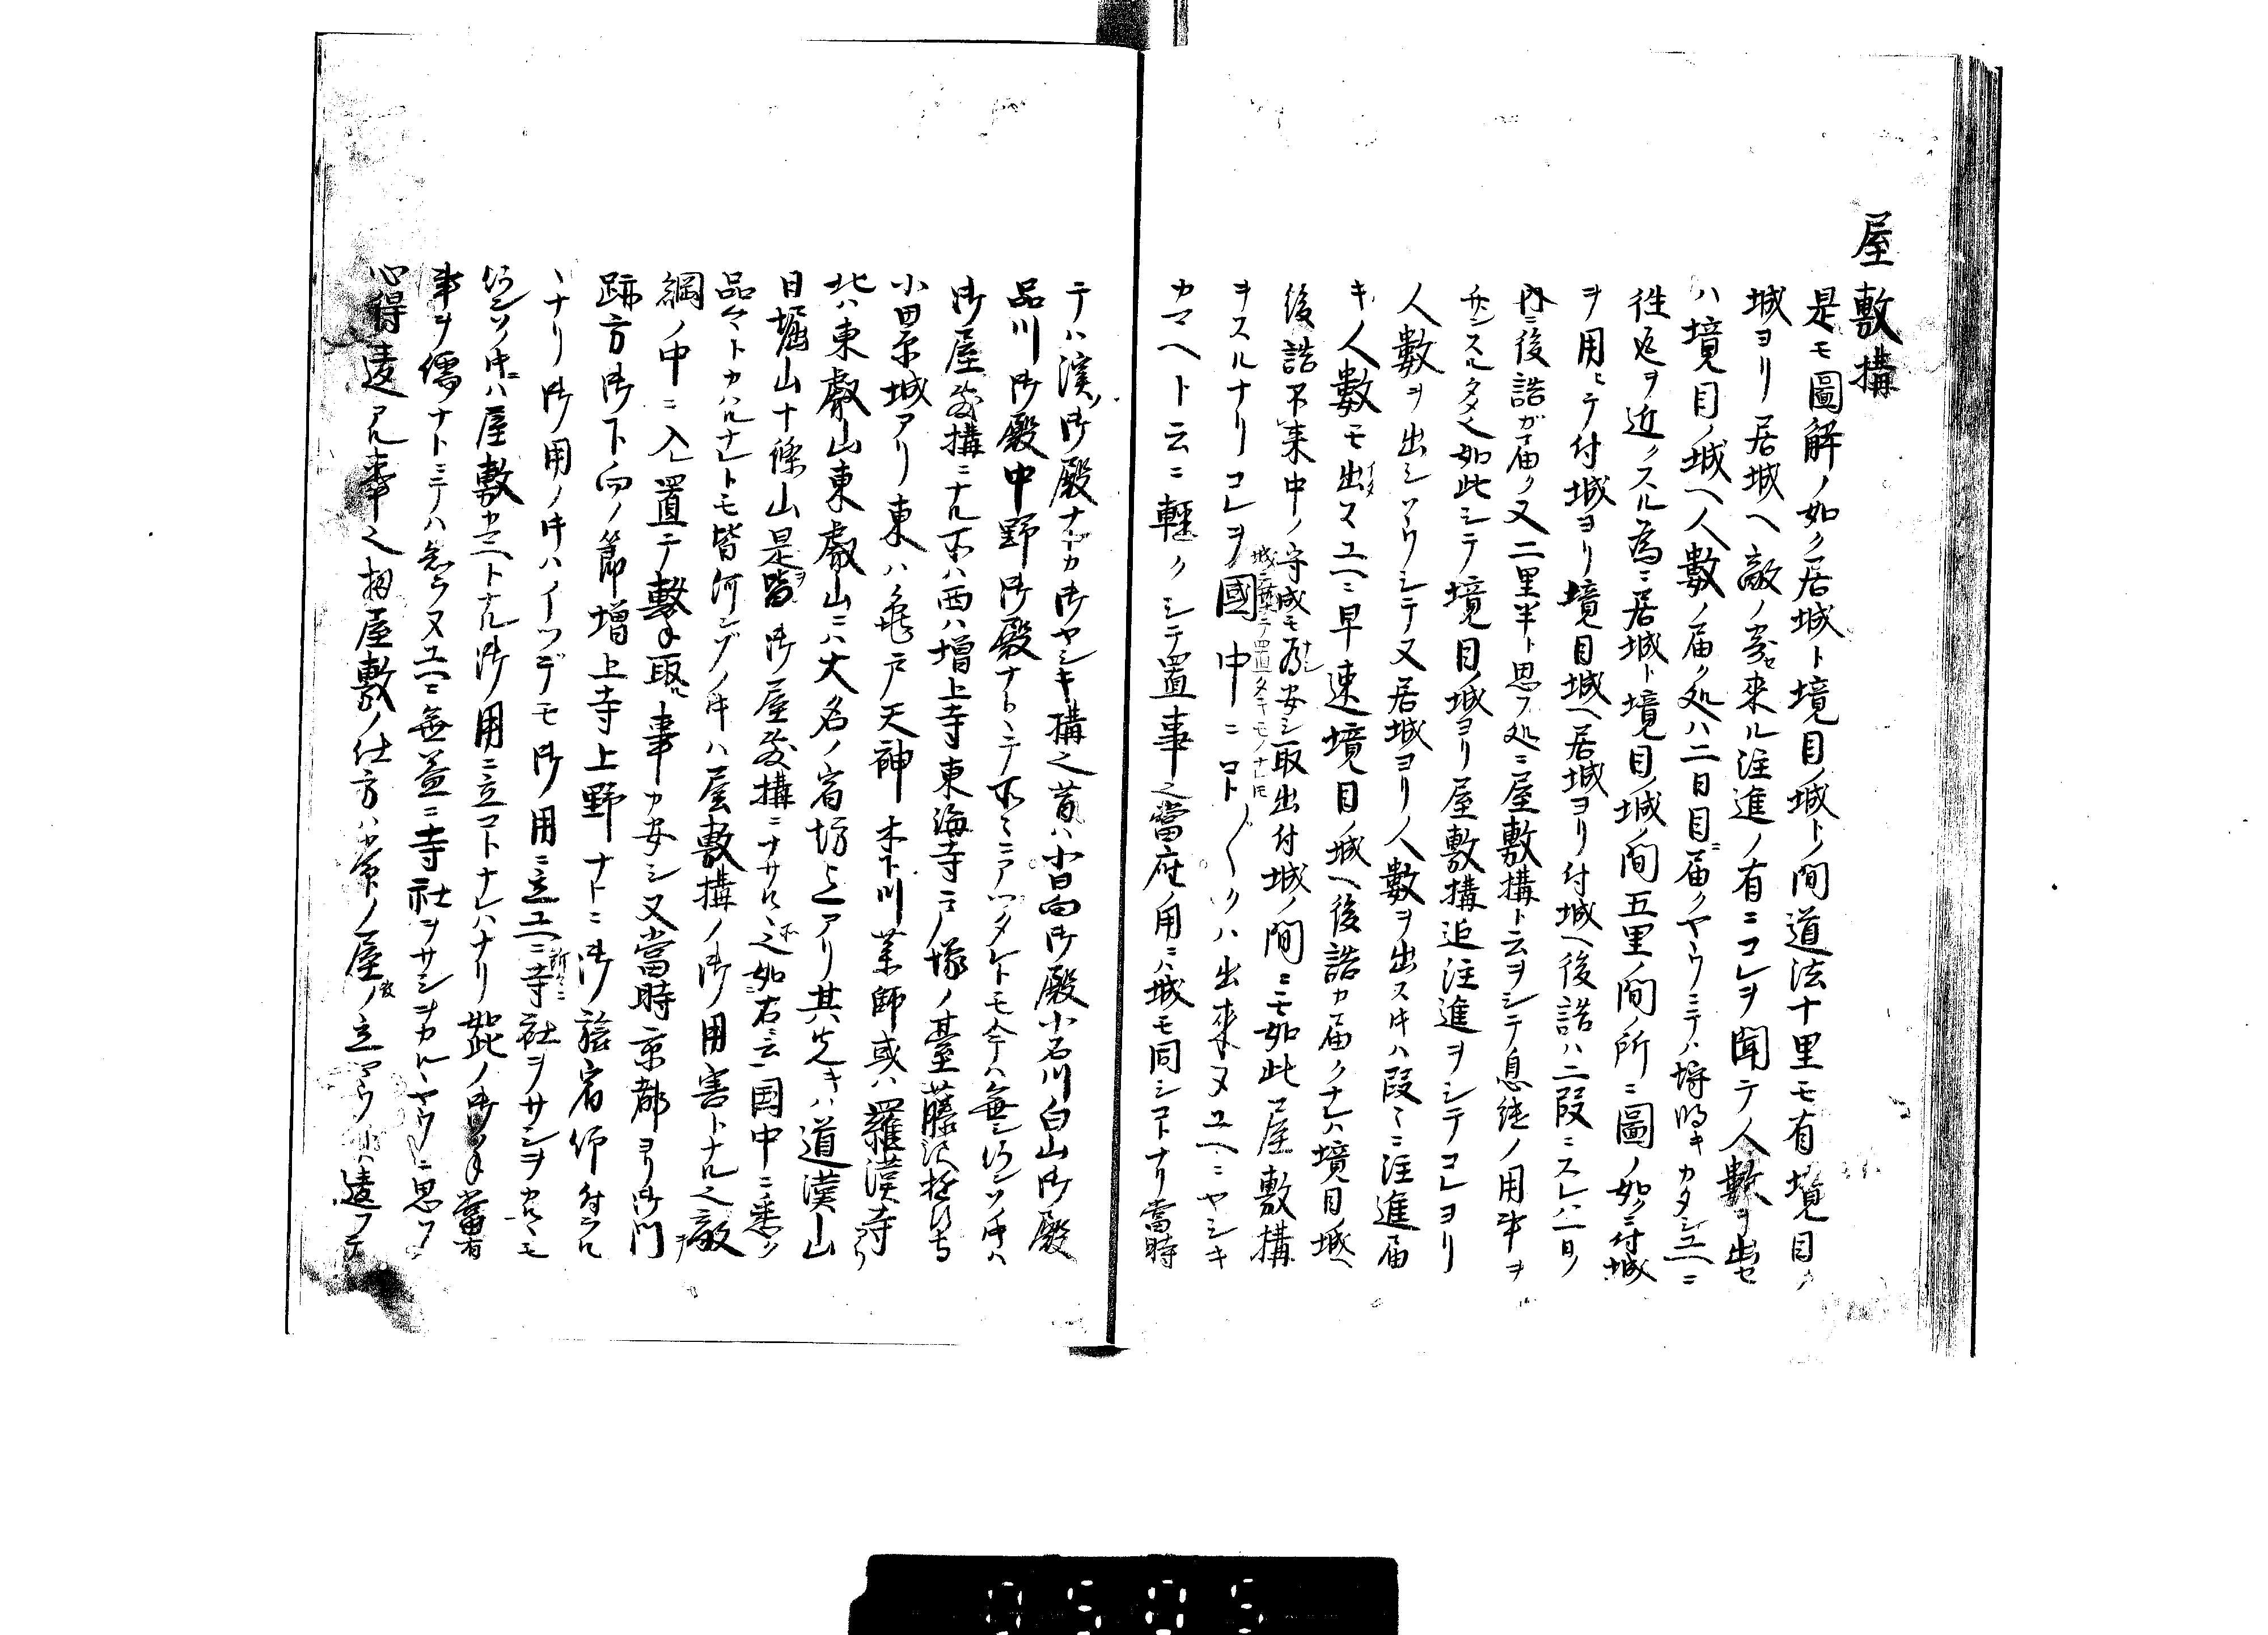 屋敷構
是モ圖解ノ如ク居城ト境目ノ城トノ間道法十里モ有境目ノ
城ヨリ居城ヘ敵ノ寄セ来ル注進ノ有ニコレヲ聞テ人數ヲ出セ
ハ境目ノ城ヘ人數ノ届ク処ハ二日目ニ届クヤウニテハ埒明キカタシユヘニ
往返ヲ近クスル為ニ居城ト境目ノ城ノ間五里ノ間ノ所ニ圖ノ如クニ付城
ヲ用ヒテ付城ヨリ境目城ヘ居城ヨリ付城ヘ後詰ハ二段ニスレハ一日ノ
内ニ後詰ガ届ク又二里半ト思フ処ニ屋敷構ト云ヲシテ息継ノ用事ヲ
サシスルタメ也如此シテ境目ノ城ヨリ屋敷構迄注進ヲシテコレヨリ
人數ヲ出シソウシテ又居城ヨリ人數ヲ出ス時ハ段々ニ注進届
キノ人數モ出スユヘニ早速境目ノ城ヘ後詰カ届クナレハ境目城ヘ
後詰不来中ノ守城モ為安シ取出付城ノ間ニモ如此屋敷構
ヲスルナリコレヲ國中ニコト〴〵クハ出来ヌユヘニヤシキ
カマヘト云ニ軽クシテ置事也當府ノ用ニハ城モ同シコトナリ當時
テハ濱ノ御殿ナトカ御ヤシキ構也昔ハ小日向御殿小石川白山御殿
品川御殿中野御殿ナトヽテ所々ニアツタレトモ今ハ無シ
御屋敷構ニナル所ハ西ハ増上寺東海寺二ノ塚ノ臺藤沢遊行寺
小田原城アリ東ハ亀戸天神木下川薬師或ハ羅漢寺
北ハ東叡山東叡山ニハ大名ノ宿坊迄アリ其先キハ道漢山
日堀山十條山是皆御屋敷構ニナサルヽ也如右云一国中ニ悉ク
品々トカハルナレトモ皆何ンゾノ時ハ屋敷構ノ御用害トナル也敵
網ノ中ニ入レ置テ撃取ル事カ安シ又當時京都ヨリ御門
跡方御下向ノ節増上寺上野ナトニ御旅宿仰付ラル
ヽナリ御用ノ時ハイツデモ御用ニ立ユヘニ寺社ヲサシヲカルヽモ
ハ屋敷カマヘトナル御用ニ立コトナレハナリ如此ノ
事ヲ儒ナトニテハ知ラヌユヘニ無益ニ寺社ヲサシヲカルヽヤウニ思フ
心得違アル事也扨屋敷ノ仕方ハ常ノ屋敷ノ立ヤウトハ違フテ